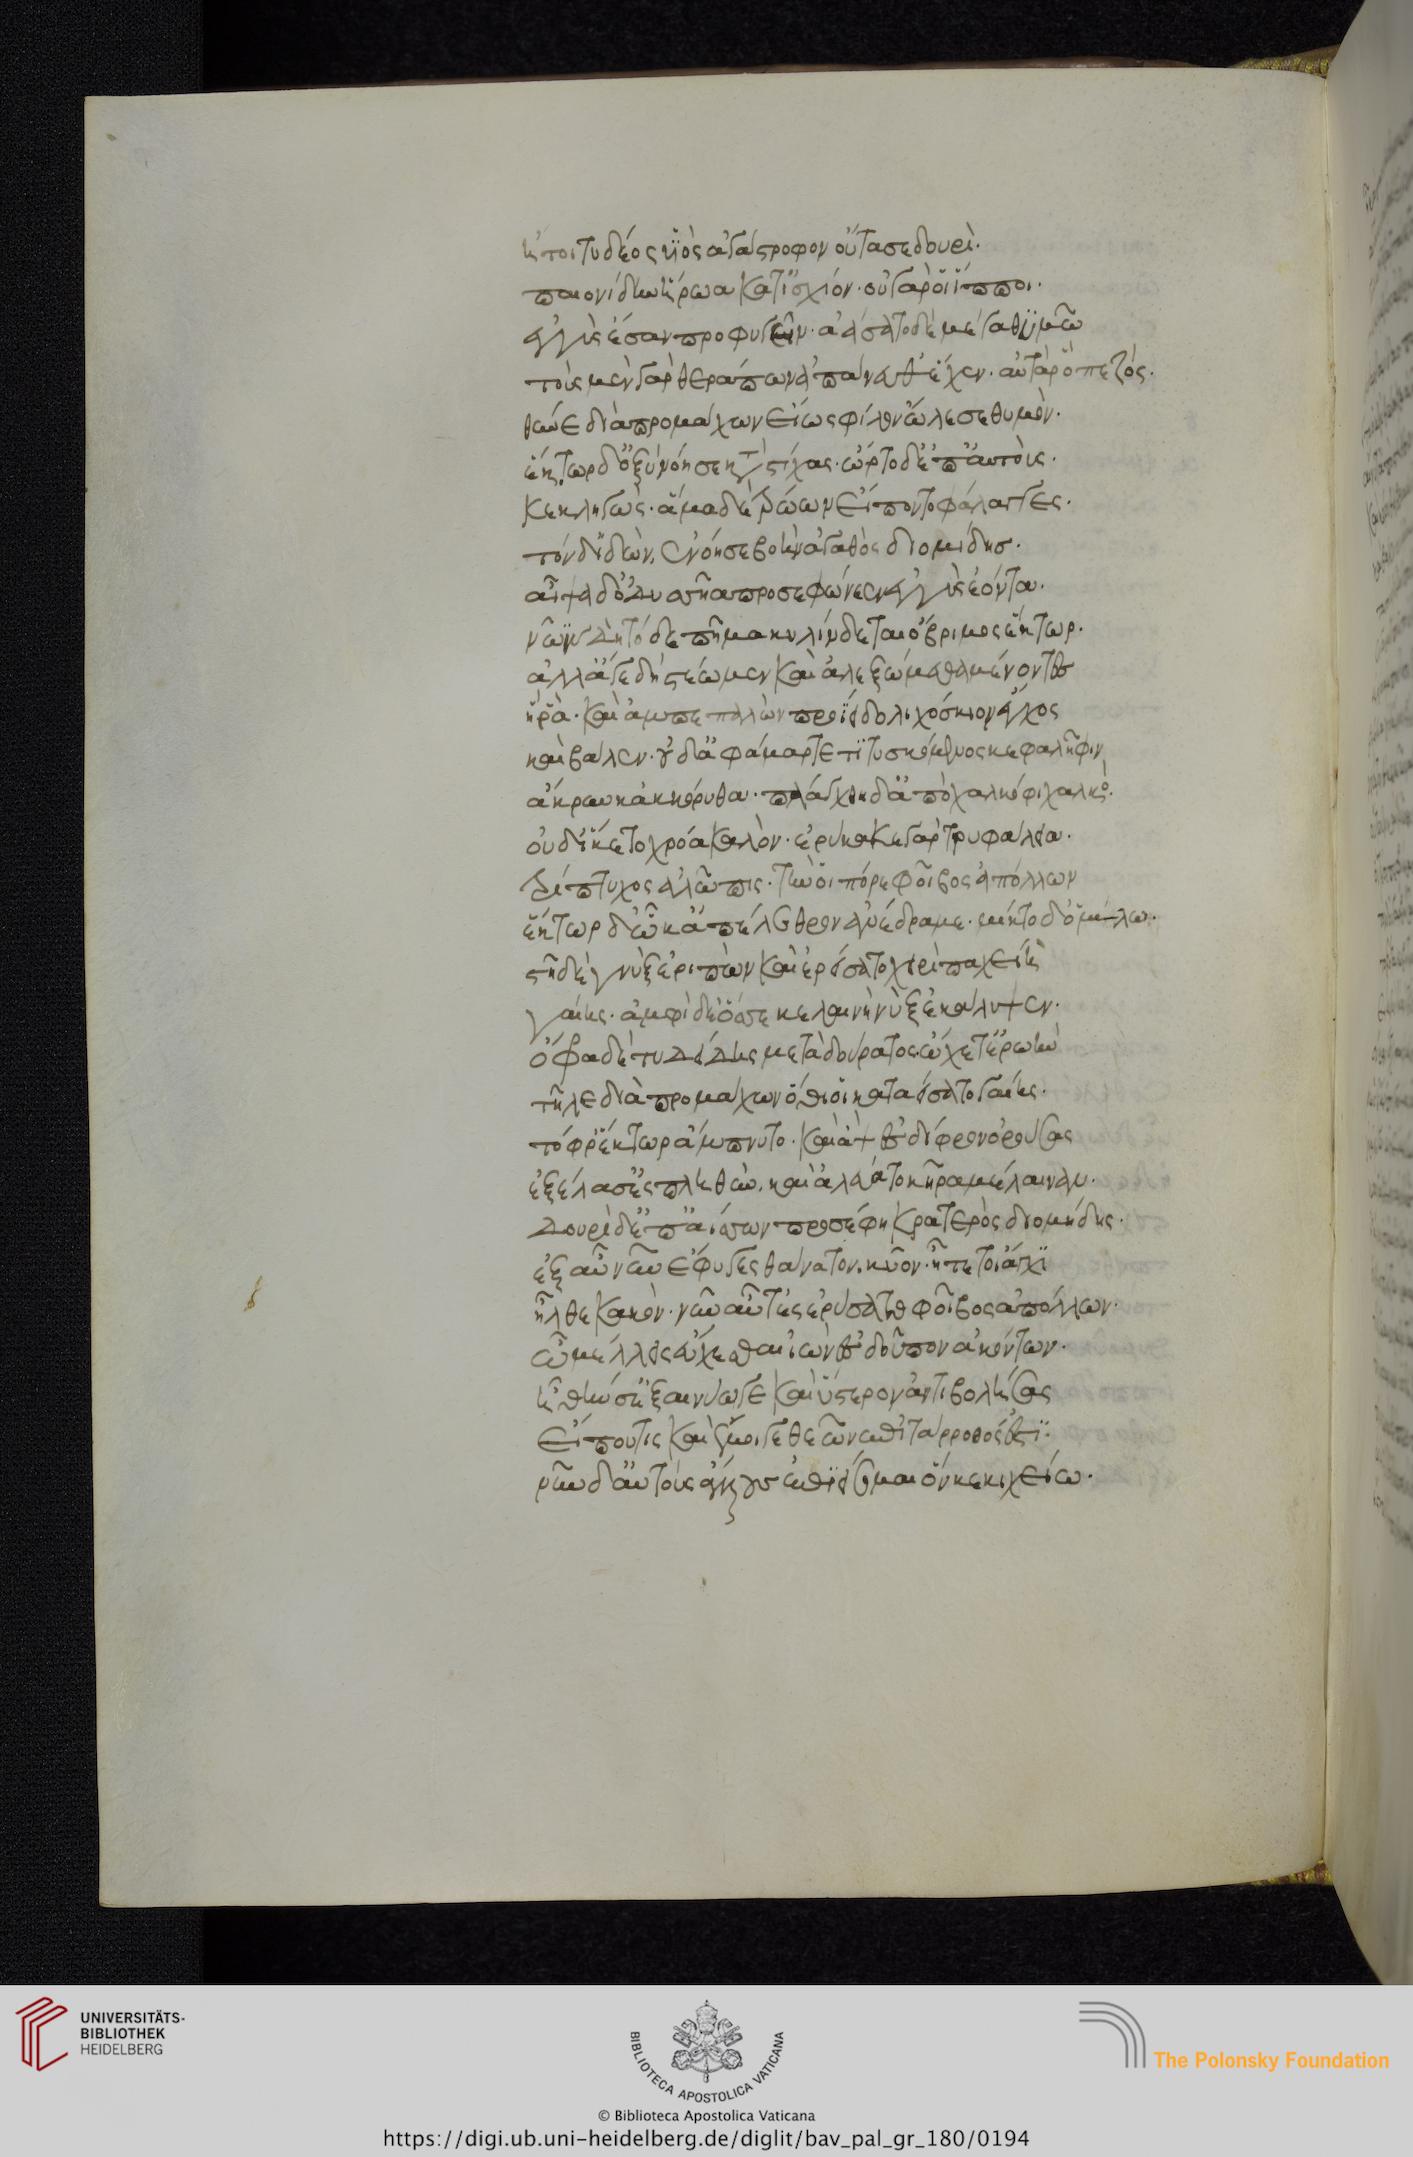 ἤτοι τυδέος υἱὸς ἀγάστροφον οὔτασε δουρὶ·
παιονίδην ἥρωα κατ' ἰσχίον· οὐ γὰρ οἱ ἵπποι·
ἐγγὺς ἔσαν προφυγεῖν· ἀάσατο δὲ μέγα θυμῶ
τοὺς μὲν γὰρ θεράπων ἀπάνευθ' ἔχεν· αὐτὰρ ὁ πεζός·
θῦνε διὰ προμάχων εἵως φίλον ὤλεσε θυμὸν·
ἕκτωρ δ' ὀξὺ νόησε κατὰ στίχας· ὦρτο δ' ἐπ' αὐτοὺς·
κεκληγὼς· ἅμα δὲ τρώων εἵποντο φάλαγγες·
τόνδ' ἰδὼν, ἐνόησε βοὴν ἀγαθὸς διομήδης·
αἶψα δ' ὀδυσσῆα προσεφώνεεν ἐγγὺς ἐόντα·
νῶϊν δὴ τόδε πῆμα κυλίνδεται ὄβριμος ἕκτωρ·
ἀλλ' ἄγε δὴ στέωμεν καὶ ἀλεξώμεσθα μένοντες
ἦ ῥὰ· καὶ ἀμπεπαλὼν προΐει δολιχόσκιον ἔγχος
καὶ βάλεν· οὐδ' ἀφάμαρτε τιτυσκόμενος κεφαλῆφιν
ἄκραν κὰκ κόρυθα· πλάγχθη δ' ἀπὸ χαλκόφι χαλκὸ·
οὐδ' ἵκετο χρόα καλὸν· ἐρύκακε γὰρ τρυφάλεια·
τρίπτυχος αὐλῶπις· τὴν οἱ πόρε φοῖβος ἀπόλλων
ἕκτωρ δ' ὦκ' ἀπέλεθρον ἀνέδραμε· μίκτο δ' ὁμίλω·
στῆ δὲ γνὺξ ἐριπὼν καὶ ἐρείσατο χειρὶ παχείη
γαίης· ἀμφὶ δὲ ὄσσε κελαινὴ νὺξ ἐκάλυψεν·
ὄφρα δὲ τυδείδης μετὰ δούρατος ὤχετ' ἐρωὴν
τῆλε διὰ προμάχων ὅθι οἱ καταείσατο γαίης·
τόφρ' ἕκτωρ ἄμπνυτο· καὶ ἂψ ἐς δίφρον ὀρούσας
ἐξέλασ' ἐς πληθὺν, καὶ ἀλεύατο κῆρα μέλαιναν·
δουρὶ δ' ἐπαΐσσων προσέφη κρατερὸς διομήδης·
ἐξ αὖ νῦν ἔφυγες θάνατον, κῦον· ἦ τέ τοι ἄγχι
ἦλθε κακὸν· νῦν αὖτέ σ' ἐρύσατο φοῖβος ἀπόλλων·
ὧ μέλλεις εὔχεσθαι ἰὼν ἐς δοῦπον ἀκόντων·
ἦ θήν σ' ἐξανύω γε καὶ ὕστερον ἀντιβολήσας
εἴ πού τις καὶ ἔμοιγε θεῶν ἐπιτάρροθός ἐστι·
νῦν δ' αὖ τοὺς ἄλλους ἐπιείσομαι ὅν κε κιχείω·
UNIVERSITÄTS-
BIBLIOTHEK
HEIDELBERG
BIBLIOTECA APOSTOLICA VATICANA
The Polonsky Foundation
© Biblioteca Apostolica Vaticana
https://digi.ub.uni-heidelberg.de/diglit/bav_pal_gr_180/0194